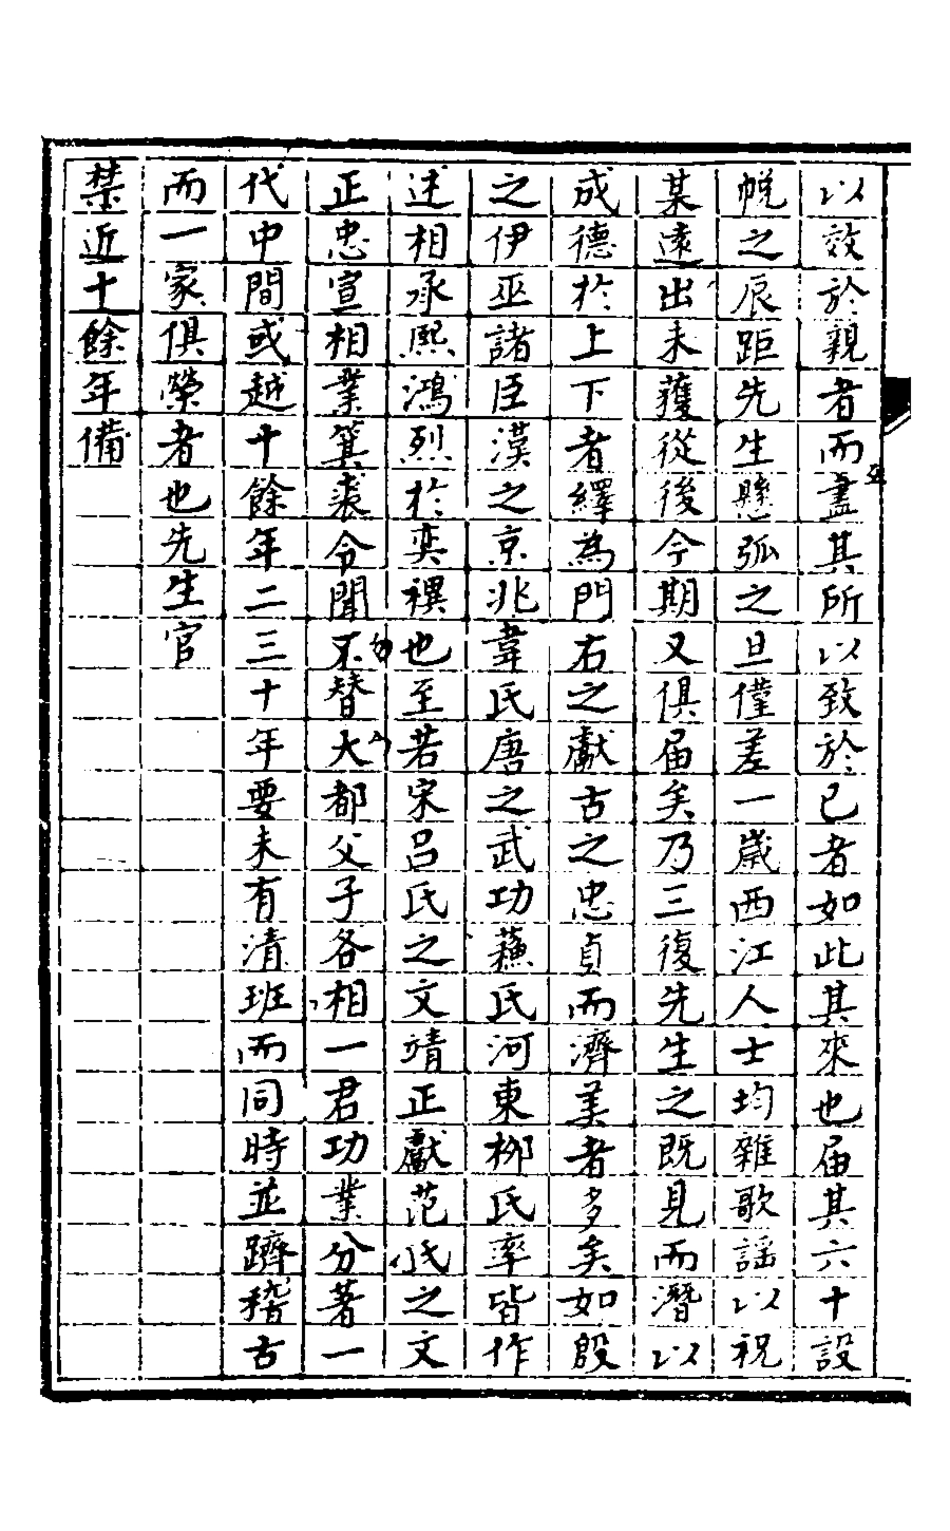 以效於親者而盡其所以致於已者如此其來也届其六十設
帨之辰距先生懸弧之旦僅差一歲西江人士均雜歌謡以祝
某遠出未獲從後今期又俱届矣乃三復先生之既見而潛以
成德於上下者繹為門右之獻古之忠貞而濟美者多矣如殷
之伊巫諸臣漢之京兆韋氏唐之武功蘇氏河東栁氏率皆作
述相承熙鴻烈於奕禩也至若宋吕氏之文靖正獻范氏之文
正忠宣相業箕裘令聞不替大都父子各相一君功業分著一
代中間或越十餘年二三十年要未有清班而同時並躋稽古
而一家俱榮者也先生官
禁近十餘年備